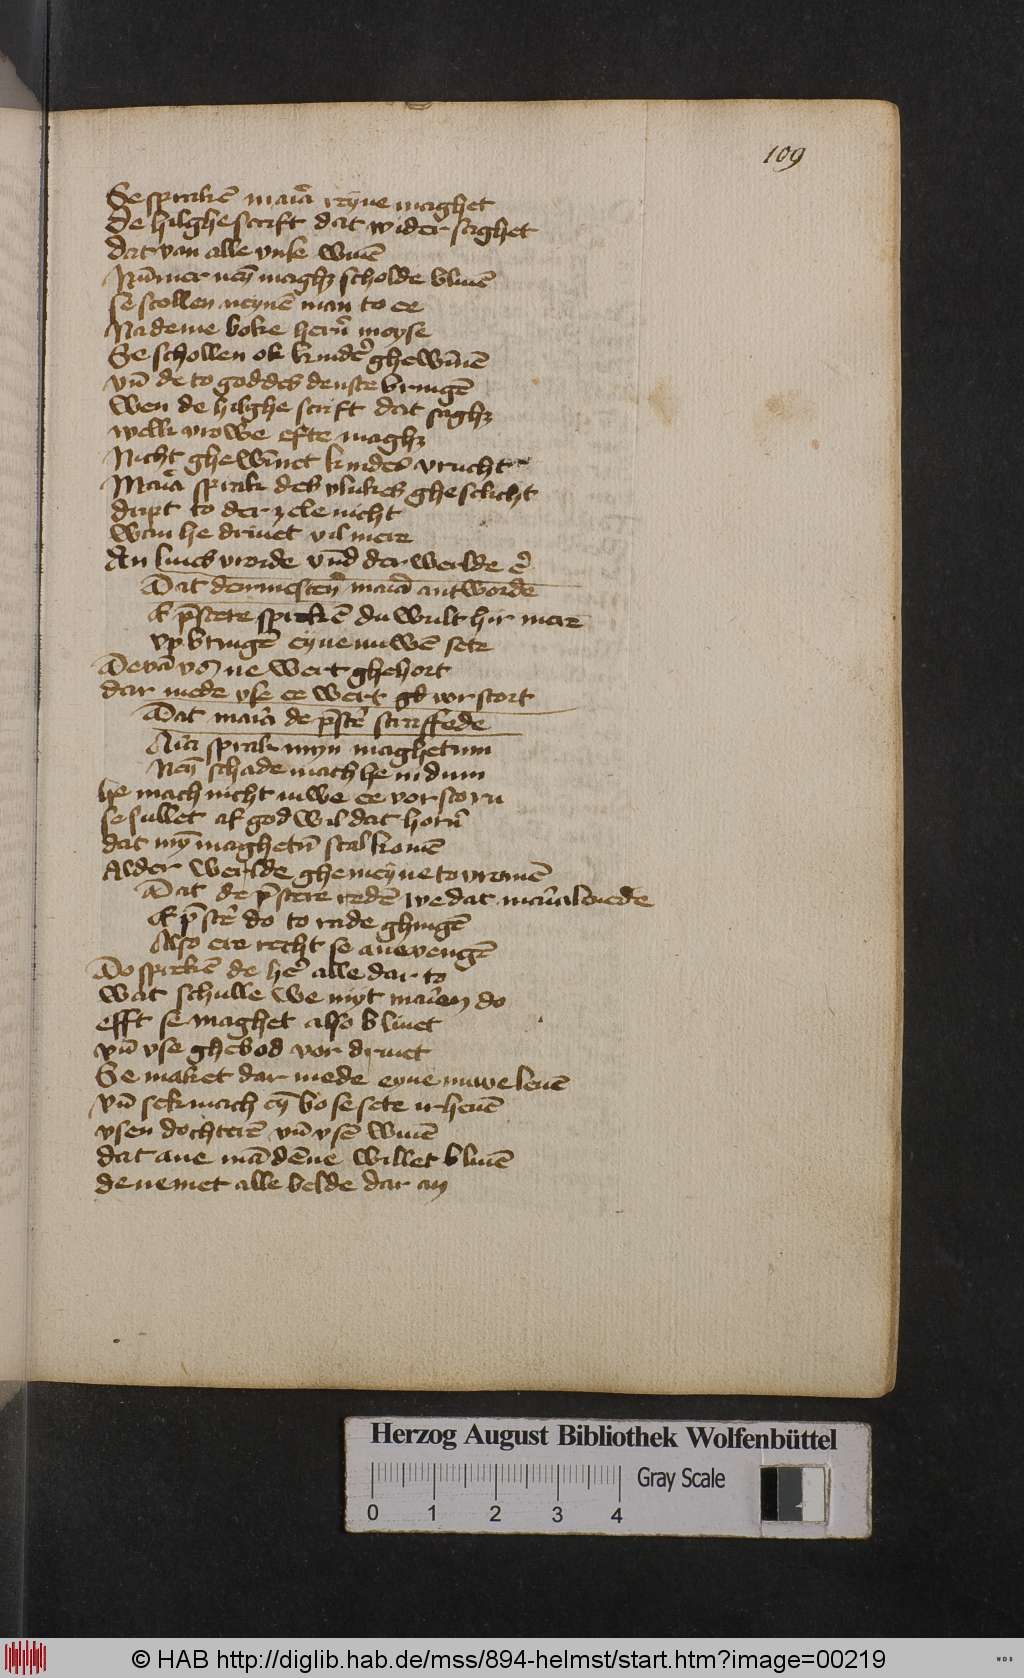 109
Se sprakē maria reyne maghet
De hilghe scrift dat wider saghet
dat van alle vnse wiuē
Nūmer neȳ maghꝫ scholde bliuē
se scollen neynē man to ee
Na deme boke hern̄ moyse
Se schollen ok kindᵉ ghewīnē
vn̄ de to goddes denste bringē
wen de hilghe scrift dat saghꝫ
welk vrowe efte maghꝫ
Nicht ghewīnet kindes vrucht
Maria sprak des vlukes gheslicht
dript to der zele nicht
wan he driuet vil mere
An liues vrorde vn̄d der werlde ēr
Dat den mesteren maria antworde
E p̄stere sprekē du wult hir mere
vp bringē eyne nuwē sete
De vā vns ne wert ghehort
dar mede vse ee wert ghe vorstort
Dat maria de p̄stere straffede
Aria sprak myn maghetum
Neȳ schade mach he nidum
he mach nicht iuwe ee vorstorn
se sullet af god wil dat horn̄
dat mȳ maghetū scal komē
Alder werlde ghemeyne to vromē
Dat de p̄stere redē we dat maria louede
E p̄stere do to rade ghingē
Also ere recht se anevengē
Do sprekē de hēre alle dar to
wat schulle we myt marien do
efft se maghet also bliuet
vn̄ vse ghebod vor driuet
Se maket dar mede eyne nuwe leuē
vn̄ sek mach eȳ bose sete irheuē
vsen dochterē vn̄ vsē wiuē
dat ane mādēne willet bliuē
de nemet alle belde dar an
Herzog August Bibliothek Wolfenbüttel
Gray Scale
0 1 2 3 4
© HAB http://diglib.hab.de/mss/894-helmst/start.htm?image=00219